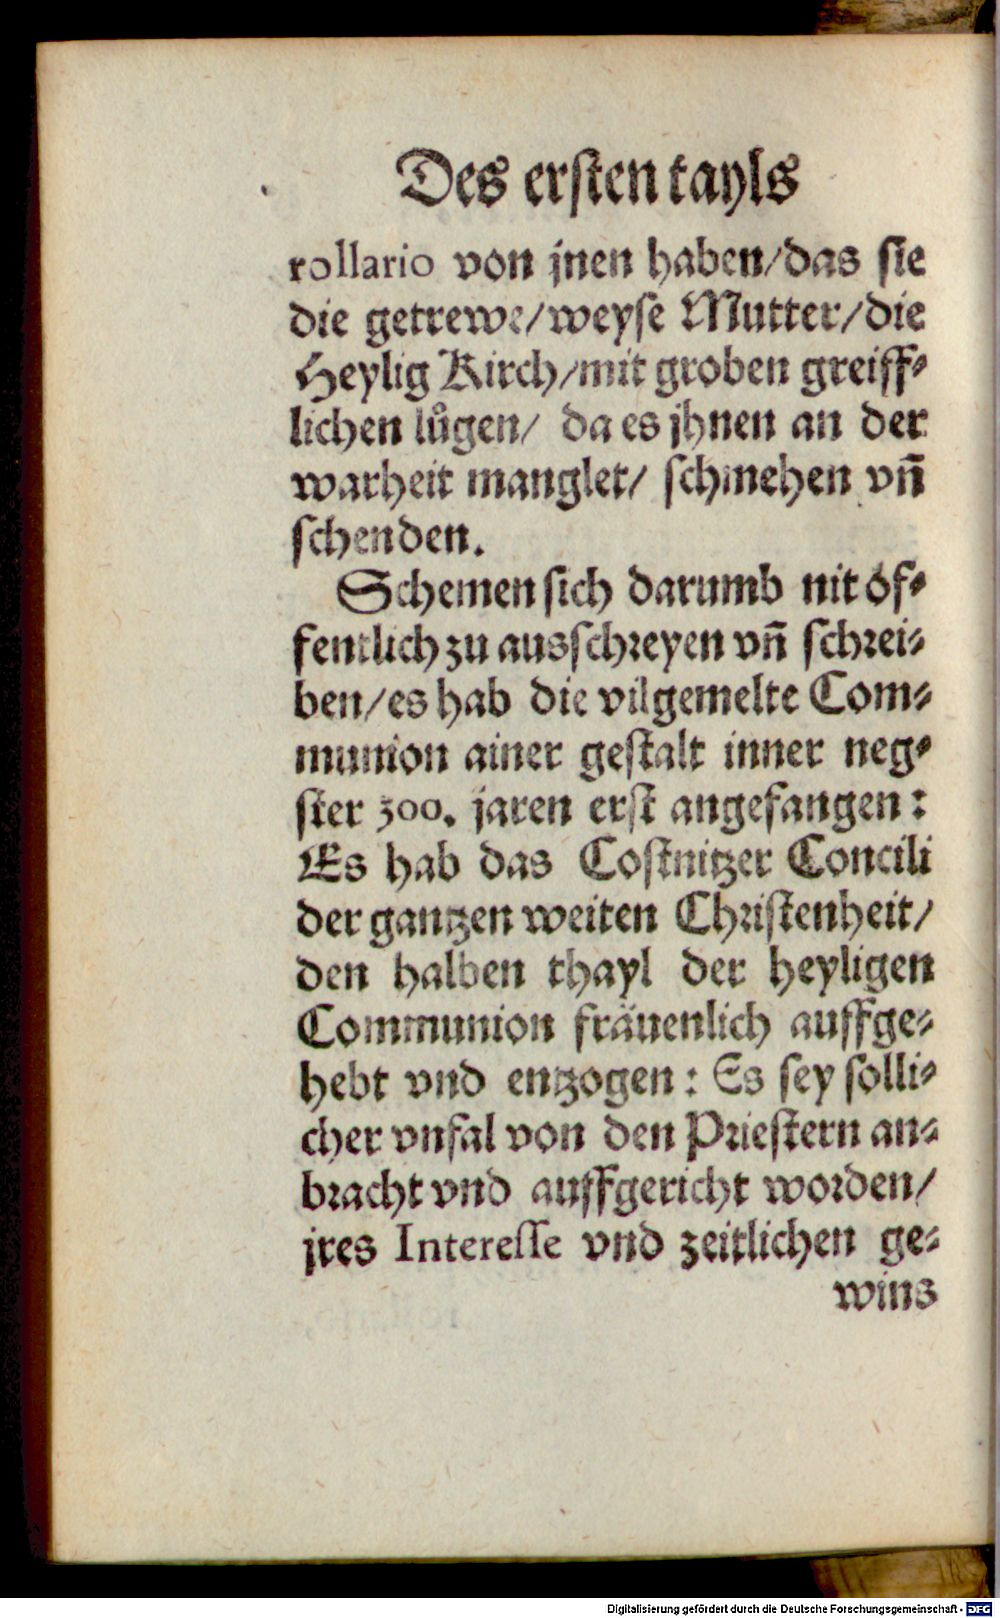 Des ersten tayls
rollario von jnen haben/das sie
die getrewe/weyse Mutter/die
Heylig Kirch/mit groben greiff⸗
lichen lůgen/ da es jhnen an der
warheit manglet/ schmehen vñ
schenden.
Schemen sich darumb nit öf⸗
fentlich zu ausschreyen vñ schrei⸗
ben/es hab die vilgemelte Com⸗
munion ainer gestalt inner neg⸗
ster 300. jaren erst angefangen:
Es hab das Costnitzer Concili
der gantzen weiten Christenheit/
den halben thayl der heyligen
Communion fräuenlich auffge⸗
hebt vnd entzogen: Es sey solli⸗
cher vnfal von den Priestern an⸗
bracht vnd auffgericht worden/
jres Interesse vnd zeitlichen ge⸗
wins
Digitalisierung gefördert durch die Deutsche Forschungsgemeinschaft - DFG